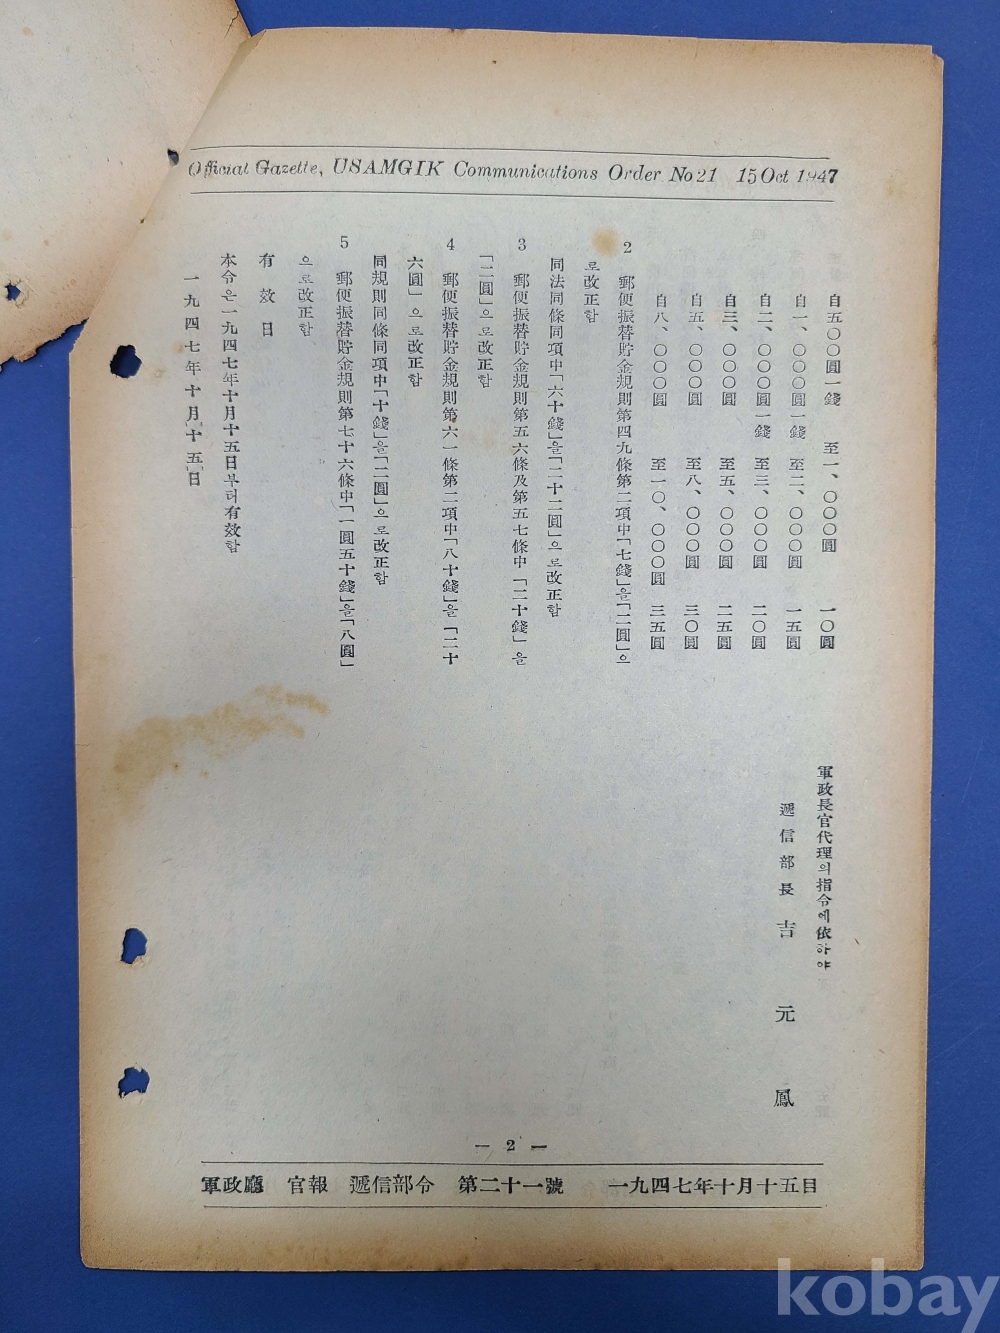 Official Gazette, USAMGIK Communications Order No 21 15 Oct 1947
自五〇〇圓一錢 至一、〇〇〇圓 一〇圓
自一、〇〇〇圓一錢 至二、〇〇〇圓 一五圓
自二、〇〇〇圓一錢 至三、〇〇〇圓 二〇圓
自三、〇〇〇圓 至五、〇〇〇圓 二五圓
自五、〇〇〇圓 至八、〇〇〇圓 三〇圓
自八、〇〇〇圓 至一〇、〇〇〇圓 三五圓
2 郵便振替貯金規則第四九條第二項中「七錢」을「二圓」으
로改正함
同法同條同項中「六十錢」을「二十二圓」으로改正함
3 郵便振替貯金規則第五六條及第五七條中「二十錢」을
「二圓」으로改正함
4 郵便振替貯金規則第六一條第二項中「八十錢」을「二十
六圓」으로改正함
同規則同條同項中「十錢」을「二圓」으로改正함
5 郵便振替貯金規則第七十六條中「一圓五十錢」을「八圓」
으로改正함
有效日
本令은一九四七年十月十五日부터有效함
一九四七年十月十五日
軍政長官代理의指令에依하야
遞信部長 吉元鳳
— 2 —
軍政廳 官報 遞信部令 第二十一號 一九四七年十月十五日
kobay